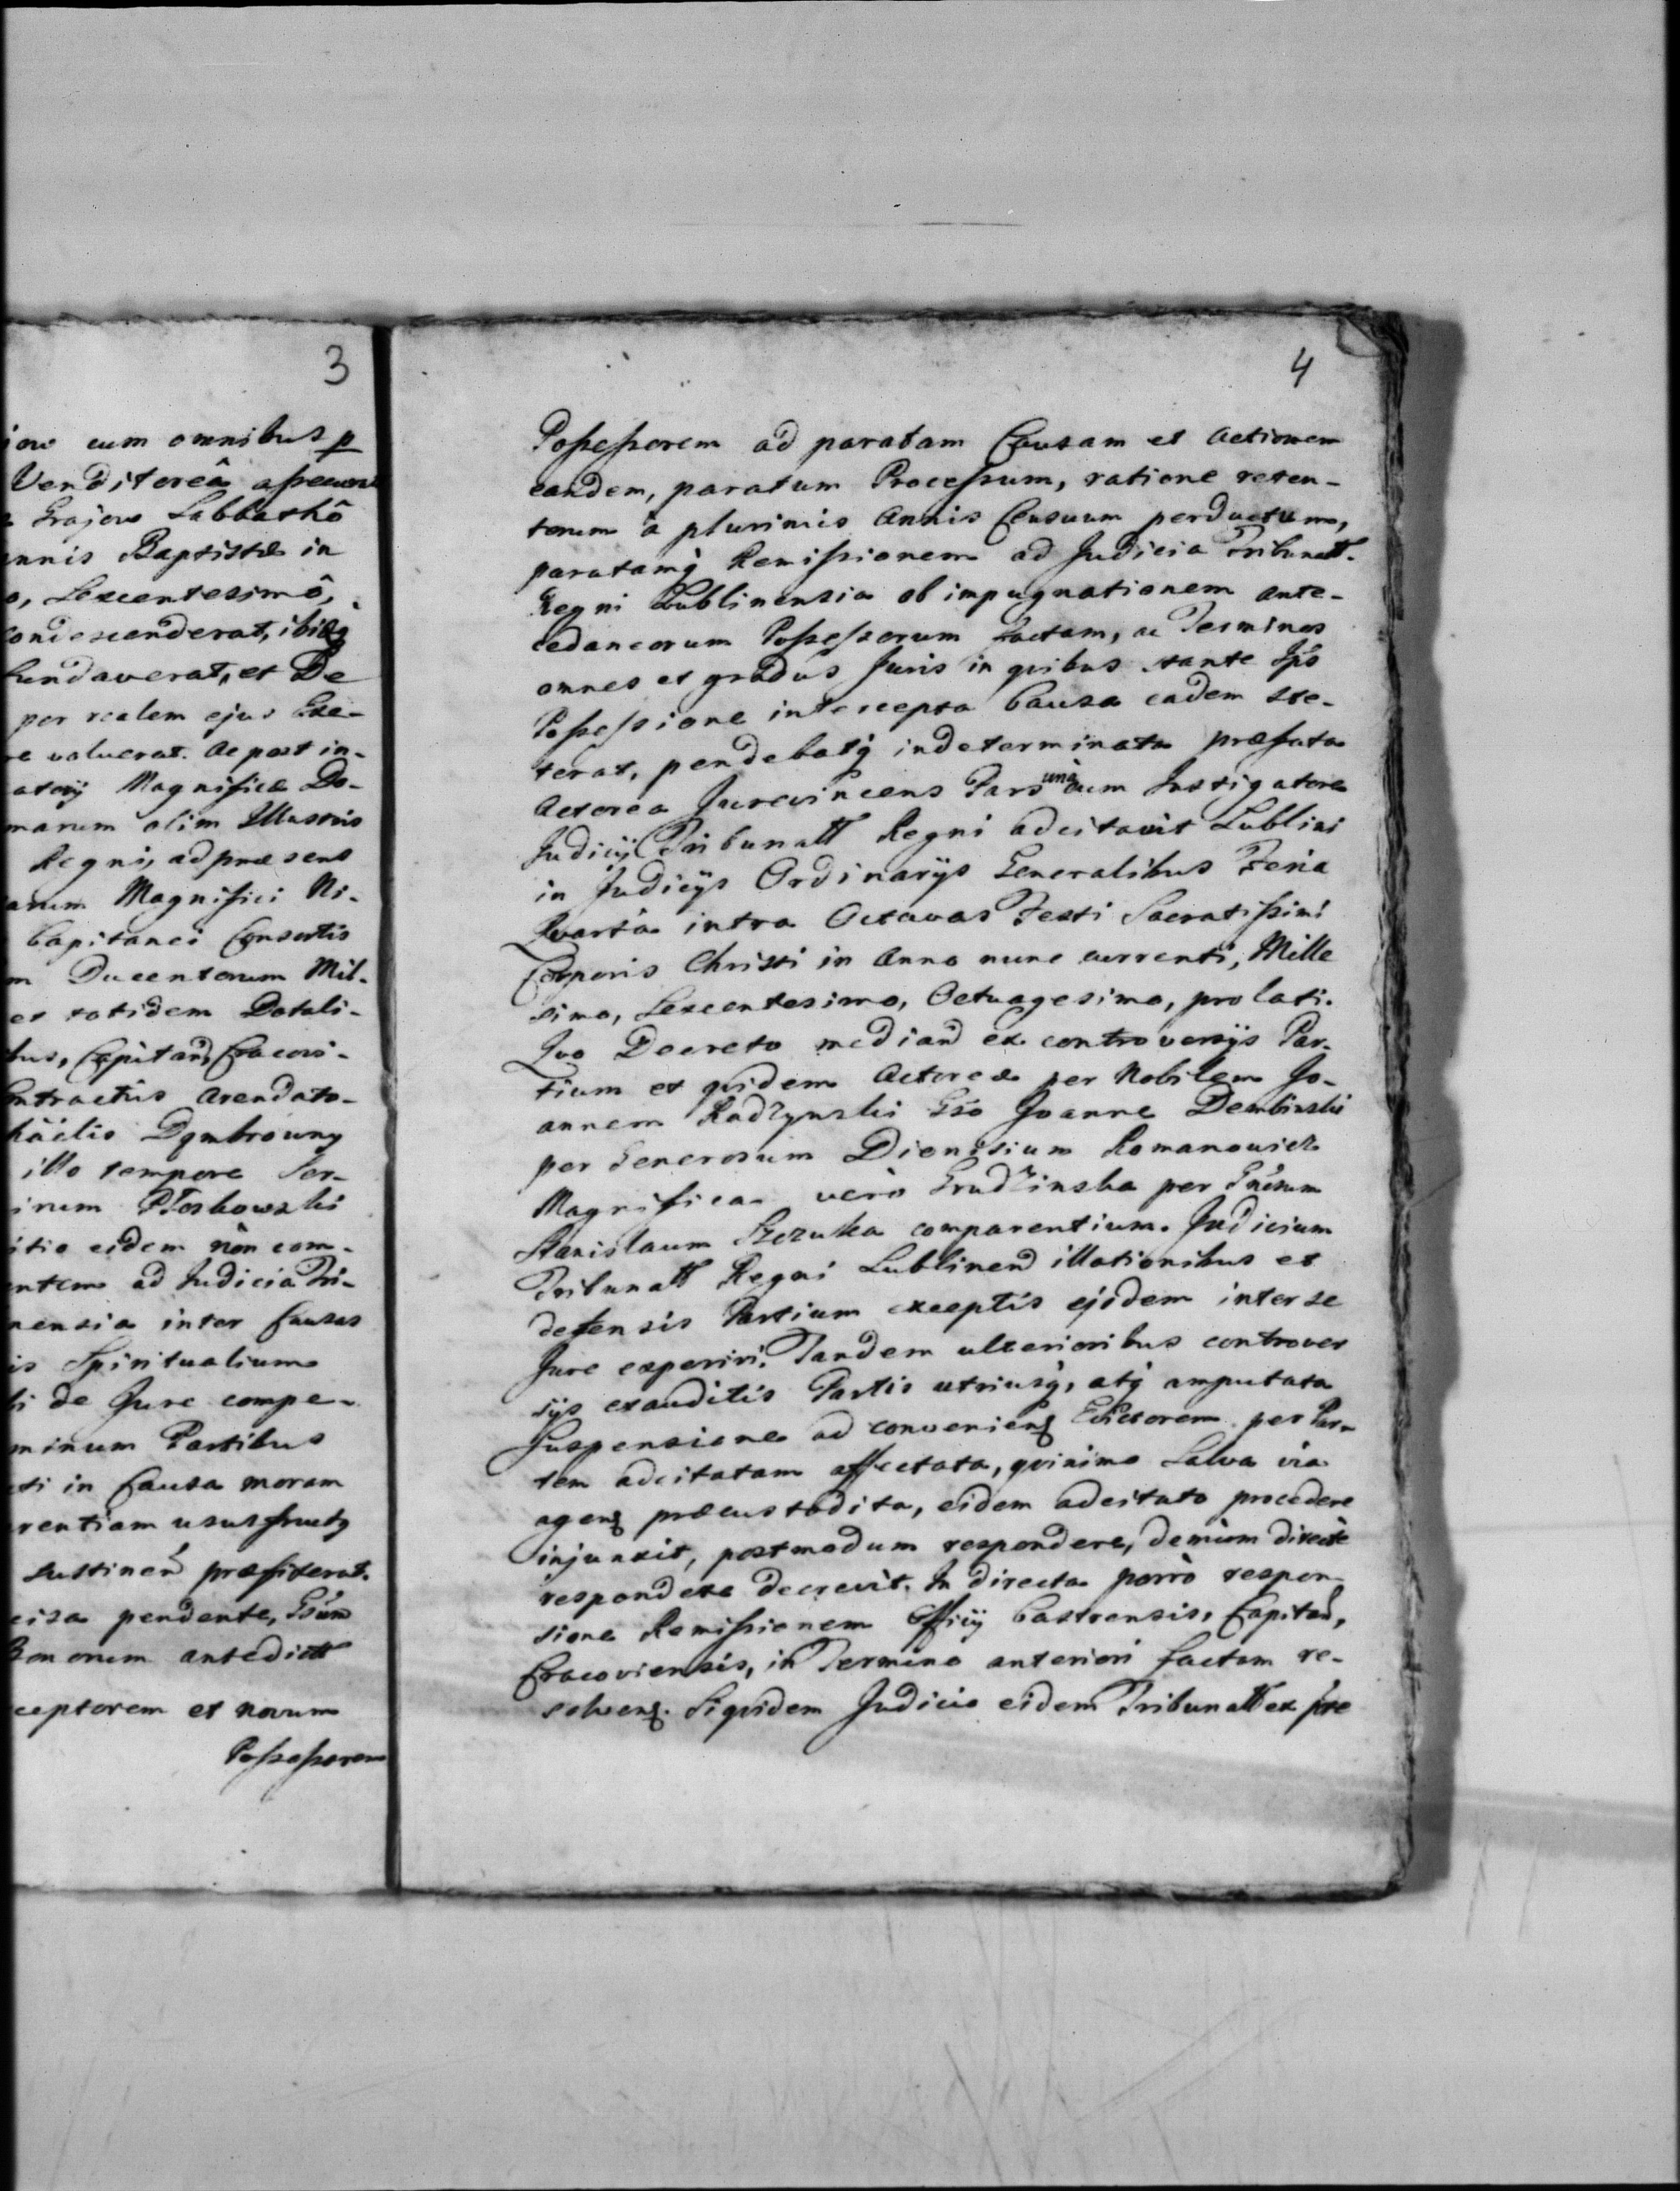 3
cum omnibus p
Venditoreâ
Grajow Sabbathô
Baptistæ in
Sexcentesimô,
condescenderat, ibidēq
et De
per realem ejus Exe-
re valuerat. Ac post in-
Magnificæ Do-
marum olim Illustris
Regni, ad præsens
arum Magnifici Ni-
Capitanei Consortis
m Ducentorum Mil-
et totidem Dotali-
bus, Capitań Cracovi-
Contractûs Arendato-
Dymbrowny
illo tempore Ser-
Ploskowski
eidem non com-
ad Judicia Tri-
nensia inter Causas
is Spiritualium
de Jure compe-
minum Partibus
in Causa moram
rentiam ususfructq
sustineń præfixerat.
cisa pendente, Gsum
Bonorum antedictt
ceptorem et novum
Possessorem
4
Possessorem ad paratam Causam et Actionem
eandem, paratum Processum, ratione reten-
torum à plurimis Annis Censuum perductum,
paratamq̃ Remissionem ad Judicia Tribunall.
Regni Lublinensia ob impugnationem ante-
cedaneorum Possessorum factam, ac Terminos
omnes et gradus Juris in quibus stante Ips̃o
Possessione intercepta Causa eadem ste-
terat, pendebatq̃ indeterminata præfata
Actorea Jurevincens Pars unà cum Instigatore
Judicij Tribunall Regni adcitavit Lublini
in Judicijs Ordinarijs Generalibus Feria
Quarta intra Octavas Festi Sacratissimi
Corporis Christi in Anno nunc currenti, Mille
simo, Sexcentesimo, Octuagesimo, prolati.
Quo Decreto mediań ex controversijs Par-
tium et quidem Actoreæ per Nobilem Jo-
annem Radzynski Gso Joanne Dembinski
per Generosum Dionisium Romanowicz
Magnifica verò Grudzinska per Gnėsum
Stanislaum Szczuka comparentium. Judicium
Tribunall Regni Lublineń illationibus et
defensis Partium exceptis ejsdem inter se
Jure experiri. Tandem ulterioribus controver
sijs exauditis Partis utriusq̃, atq̃ amputata
Suspensione ad convenienę Evictorem per Par-
tem adcitatam affectata, quinimo Salva via
agenę præcustodita, eidem adcitato procedere
injunxit, postmodum respondere, demùm directe
respondere decrevit. In directa porrò respon-
sione Remissionem Officij Castrensis, Capitań,
Cracoviensis, in Termino anteriori factam re-
solvenę. Siquidem Judicio eidem Tribunall ex præ